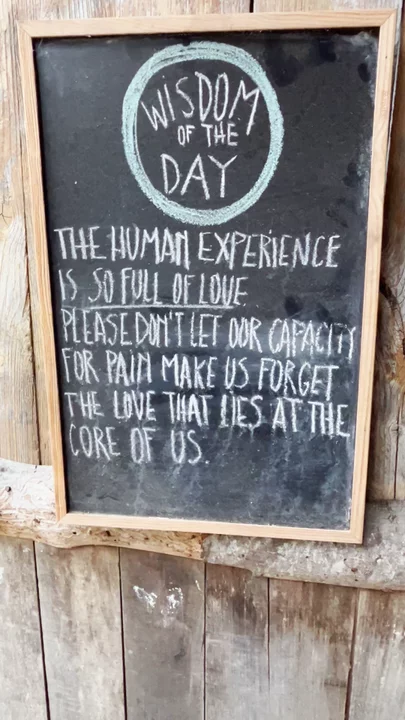 WISDOM
OF THE
DAY
THE HUMAN EXPERIENCE
IS SO FULL OF LOVE
PLEASE DON'T LET OUR CAPACITY
FOR PAIN MAKE US FORGET
THE LOVE THAT LIES AT THE
CORE OF US.